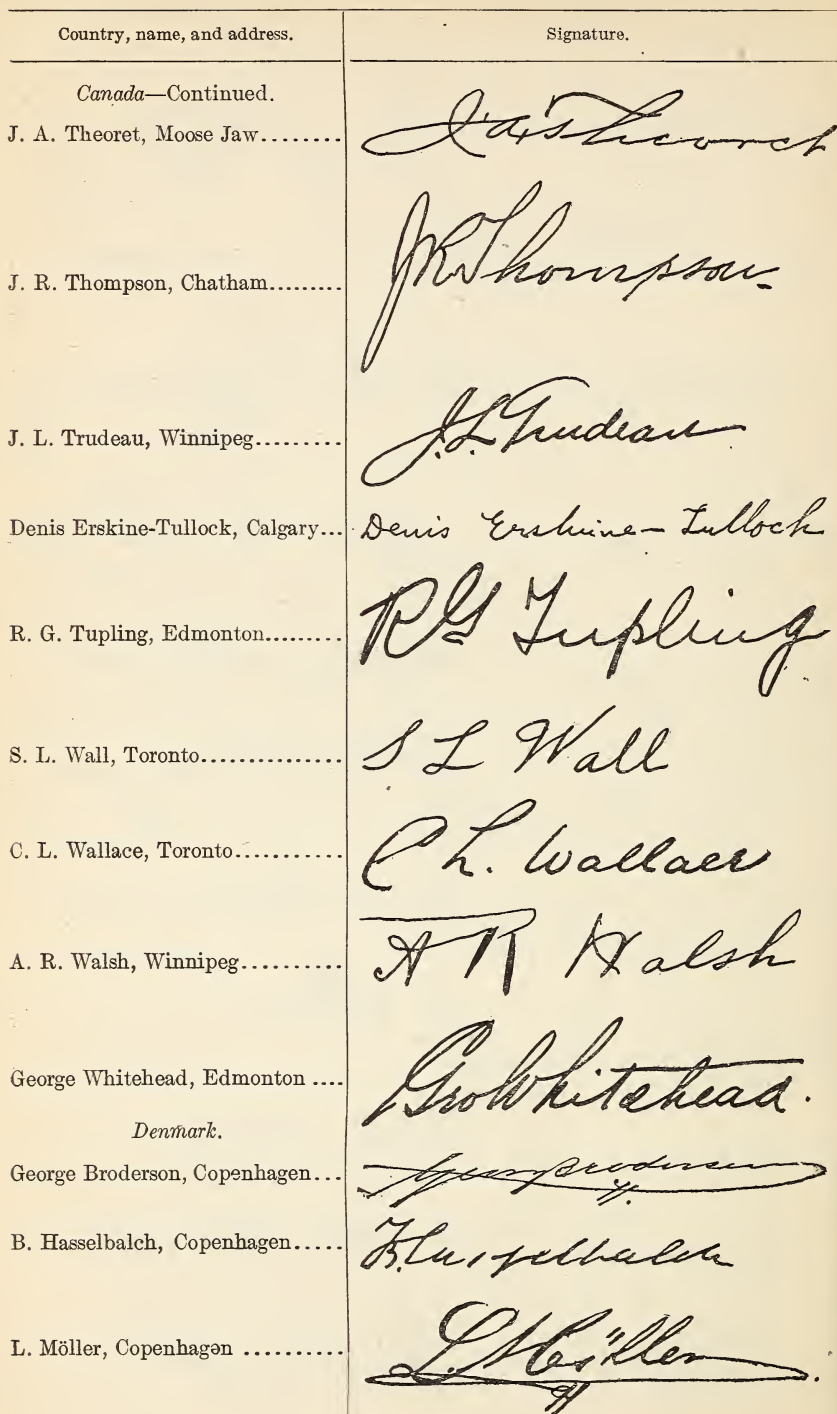 Country, name, and address. Signature.
Canada—Continued.
J. A. Theoret, Moose Jaw......... J. A. Theoret
J. R. Thompson, Chatham......... J R Thompson
J. L. Trudeau, Winnipeg......... J. L. Trudeau
Denis Erskine-Tullock, Calgary... Denis Erskine-Tulloch
R. G. Tupling, Edmonton......... R G Tupling
S. L. Wall, Toronto............... S L Wall
C. L. Wallace, Toronto........... C L. Wallace
A. R. Walsh, Winnipeg.......... A R Walsh
George Whitehead, Edmonton .... Geo Whitehead.
Denmark.
George Broderson, Copenhagen... Brodersen
B. Hasselbalch, Copenhagen..... Hasselbalch
L. Möller, Copenhagen .......... L. Möller